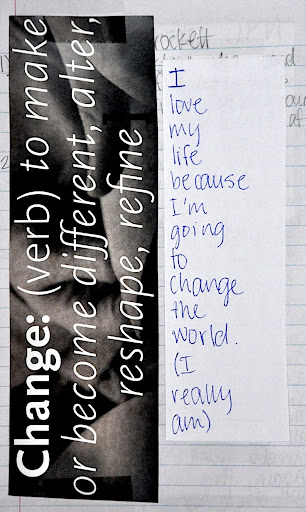 Change: (verb) to make
or become different, alter,
reshape, refine
rockett
I
love
my
life
because
I'm
going
to
change
the
world.
(I
really
am)